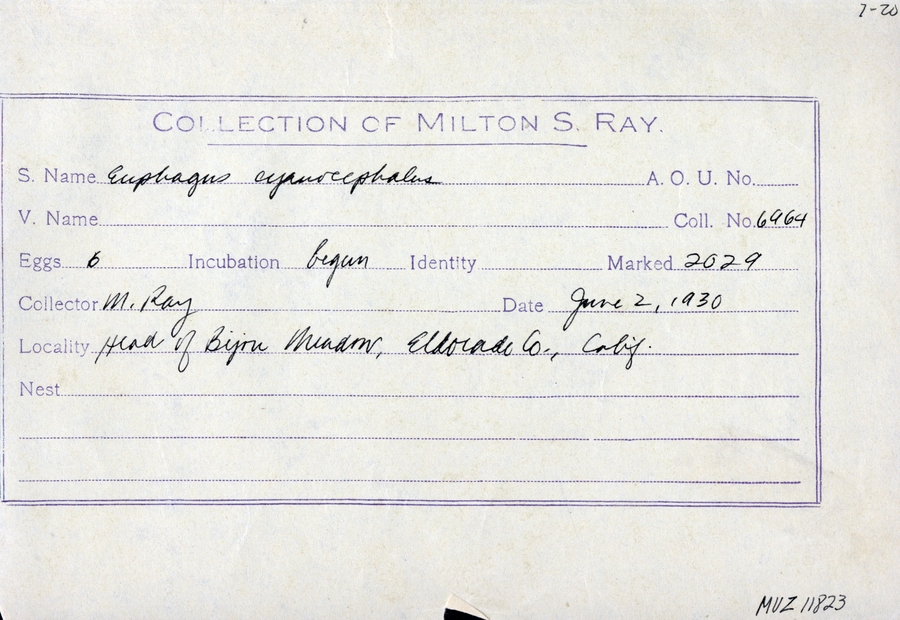 7-20
COLLECTION OF MILTON S. RAY.
S. Name Euphagus cyanocephalus A. O. U. No.
V. Name Coll. No. 6964
Eggs 6 Incubation begun Identity Marked 2029
Collector M. Ray Date June 2, 1930
Locality Head of Bijou Meadow, Eldorado Co., Calif.
Nest
MVZ 11823